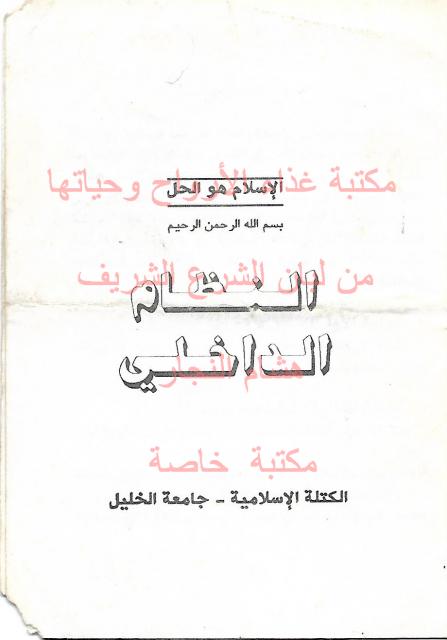 الإسلام هو الحل
مكتبة غذاء الأرواح وحياتها
بسم الله الرحمن الرحيم
من لبان الشرع الشريف
النظام
الداخلي
هشام النجار
مكتبة خاصة
الكتلة الإسلامية - جامعة الخليل